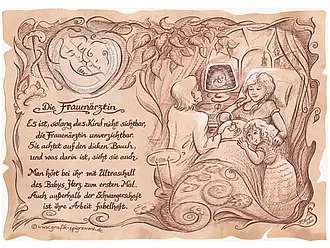 Die Frauenärztin
Es ist, solang das Kind nicht sichtbar,
die Frauenärztin unverzichtbar.
Sie achtet auf den dicken Bauch,
und was darin ist, sieht sie auch.
Man hört bei ihr mit Ultraschall
des Babys Herz zum ersten Mal.
Auch außerhalb der Schwangerschaft
ist ihre Arbeit fabelhaft.